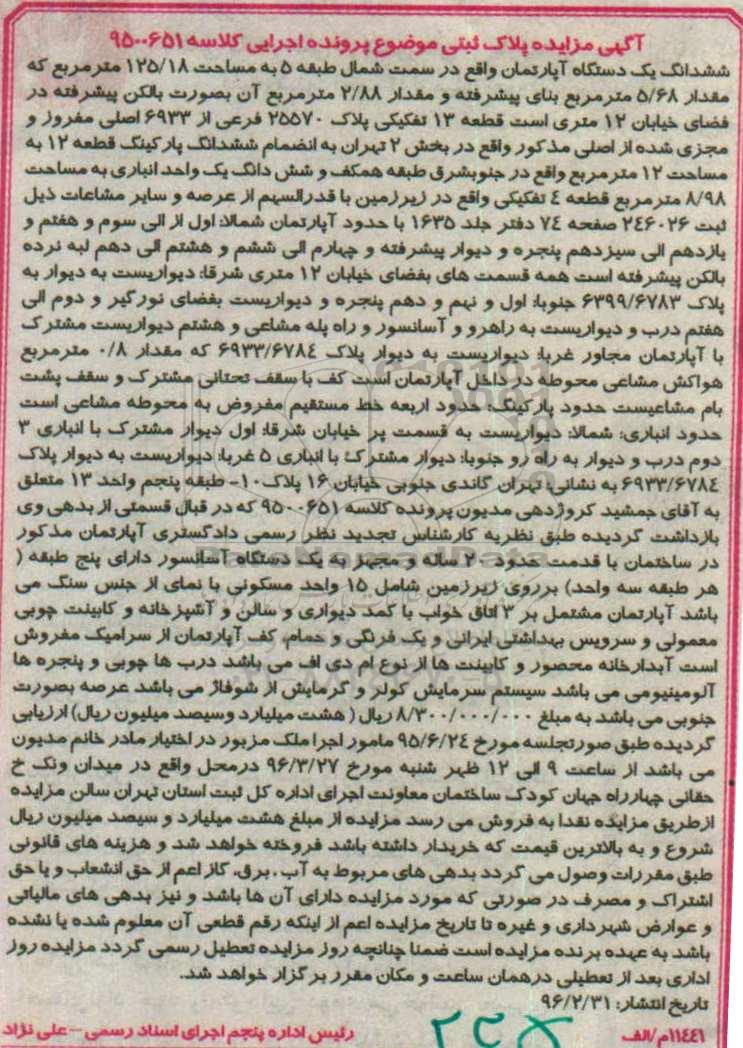 آگهی مزایده پلاک ثبتی موضوع پرونده اجرایی کلاسه ۹۵۰۰۶۵۱
ششدانگ یک دستگاه آپارتمان واقع در سمت شمال طبقه ۵ به مساحت ۱۲۵/۱۸ مترمربع که
مقدار ۵/۶۸ مترمربع بنای پیشرفته و مقدار ۲/۸۸ مترمربع آن بصورت بالکن پیشرفته در
فضای خیابان ۱۲ متری است قطعه ۱۳ تفکیکی پلاک ۲۵۵۷۰ فرعی از ۶۹۳۳ اصلی مفروز و
مجزی شده از اصلی مذکور واقع در بخش ۲ تهران به انضمام ششدانگ پارکینگ قطعه ۱۲ به
مساحت ۱۲ مترمربع واقع در جنوبشرق طبقه همکف و شش دانگ یک واحد انباری به مساحت
۸/۹۸ مترمربع قطعه ٤ تفکیکی واقع در زیرزمین با قدرالسهم از عرصه و سایر مشاعات ذیل
ثبت ۲٤۶۰۲۶ صفحه ۷٤ دفتر جلد ۱۶۳۵ با حدود آپارتمان شمالا: اول از الی سوم و هفتم و
یازدهم الی سیزدهم پنجره و دیوار پیشرفته و چهارم الی ششم و هشتم الی دهم لبه نرده
بالکن پیشرفته است همه قسمت های بفضای خیابان ۱۲ متری شرقا: دیواریست به دیوار به
پلاک ۶۳۹۹/۶۷۸۳ جنوبا: اول و نهم و دهم پنجره و دیواریست بفضای نورگیر و دوم الی
هفتم درب و دیواریست به راهرو و آسانسور و راه پله مشاعی و هشتم دیواریست مشترک
با آپارتمان مجاور غربا: دیواریست به دیوار پلاک ۶۹۳۳/۶۷۸٤ که مقدار ۰/۸ مترمربع
هواکش مشاعی محوطه در داخل آپارتمان است کف با سقف تحتانی مشترک و سقف پشت
بام مشاعیست حدود پارکینگ: حدود اربعه خط مستقیم مفروض به محوطه مشاعی است
حدود انباری: شمالا: دیواریست به قسمت پر خیابان شرقا: اول دیوار مشترک با انباری ۳
دوم درب و دیوار به راه رو جنوبا: دیوار مشترک با انباری ۵ غربا: دیواریست به دیوار پلاک
۶۹۳۳/۶۷۸٤ به نشانی: تهران گاندی جنوبی خیابان ۱۶ پلاک۱۰- طبقه پنجم واحد ۱۳ متعلق
به آقای جمشید کروژدهی مدیون پرونده کلاسه ۹۵۰۰۶۵۱ که در قبال قسمتی از بدهی وی
بازداشت گردیده طبق نظریه کارشناس تجدید نظر رسمی دادگستری آپارتمان مذکور
در ساختمان با قدمت حدود ۲۰ ساله و مجهز به یک دستگاه آسانسور دارای پنج طبقه (
هر طبقه سه واحد) برروی زیرزمین شامل ۱۵ واحد مسکونی با نمای از جنس سنگ می
باشد آپارتمان مشتمل بر ۳ اتاق خواب با کمد دیواری و سالن و آشپزخانه و کابینت چوبی
معمولی و سرویس بهداشتی ایرانی و یک فرنگی و حمام، کف آپارتمان از سرامیک مفروش
است آبدارخانه محصور و کابینت ها از نوع ام دی اف می باشد درب ها چوبی و پنجره ها
آلومینیومی می باشد سیستم سرمایش کولر و گرمایش از شوفاژ می باشد عرصه بصورت
جنوبی می باشد به مبلغ ۸/۳۰۰/۰۰۰/۰۰۰ ریال ( هشت میلیارد وسیصد میلیون ریال) ارزیابی
گردیده طبق صورتجلسه مورخ ۹۵/۶/۲٤ مامور اجرا ملک مزبور در اختیار مادر خانم مدیون
می باشد از ساعت ۹ الی ۱۲ ظهر شنبه مورخ ۹۶/۳/۲۷ درمحل واقع در میدان ونک خ
حقانی چهارراه جهان کودک ساختمان معاونت اجرای اداره کل ثبت استان تهران سالن مزایده
ازطریق مزایده نقدا به فروش می رسد مزایده از مبلغ هشت میلیارد و سیصد میلیون ریال
شروع و به بالاترین قیمت که خریدار داشته باشد فروخته خواهد شد و هزینه های قانونی
طبق مقررات وصول می گردد بدهی های مربوط به آب، برق، گاز اعم از حق انشعاب و یا حق
اشتراک و مصرف در صورتی که مورد مزایده دارای آن ها باشد و نیز بدهی های مالیاتی
و عوارض شهرداری و غیره تا تاریخ مزایده اعم از اینکه رقم قطعی آن معلوم شده یا نشده
باشد به عهده برنده مزایده است ضمنا چنانچه روز مزایده تعطیل رسمی گردد مزایده روز
اداری بعد از تعطیلی درهمان ساعت و مکان مقرر برگزار خواهد شد.
تاریخ انتشار: ۹۶/۲/۳۱
۱۱٤٤۱م/الف رئیس اداره پنجم اجرای اسناد رسمی – علی نژاد